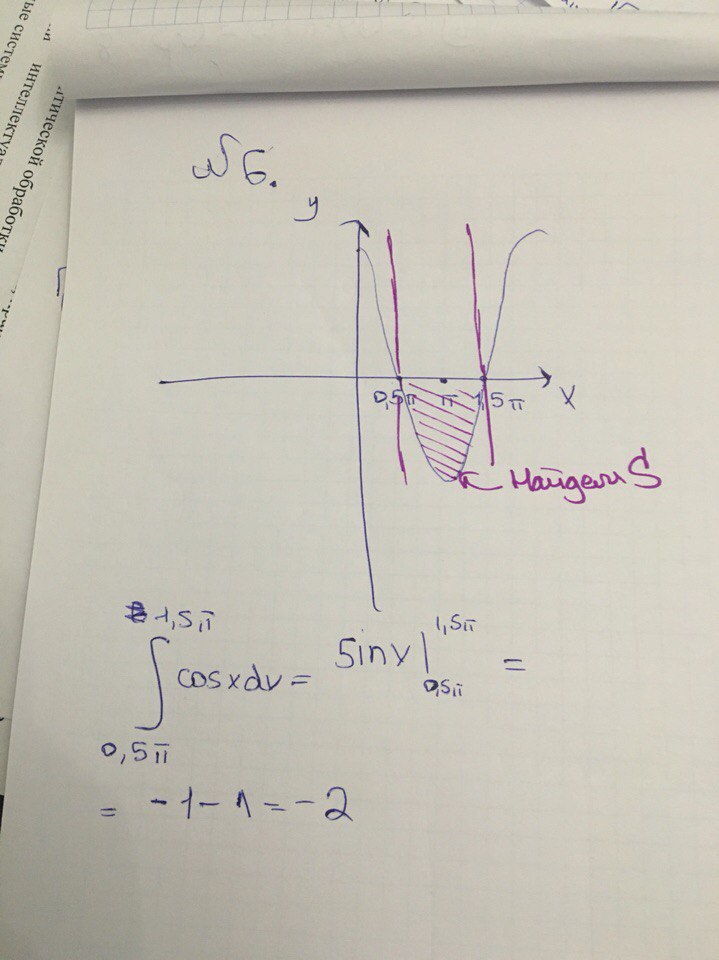 ые систем
ии
интеллектуа
птической обработки
№ 6.
y
0,5π π 1,5π x
Найдем S
1,5π
∫ cosxdx = sinx | 1,5π 0,5π =
0,5π
= -1-1=-2